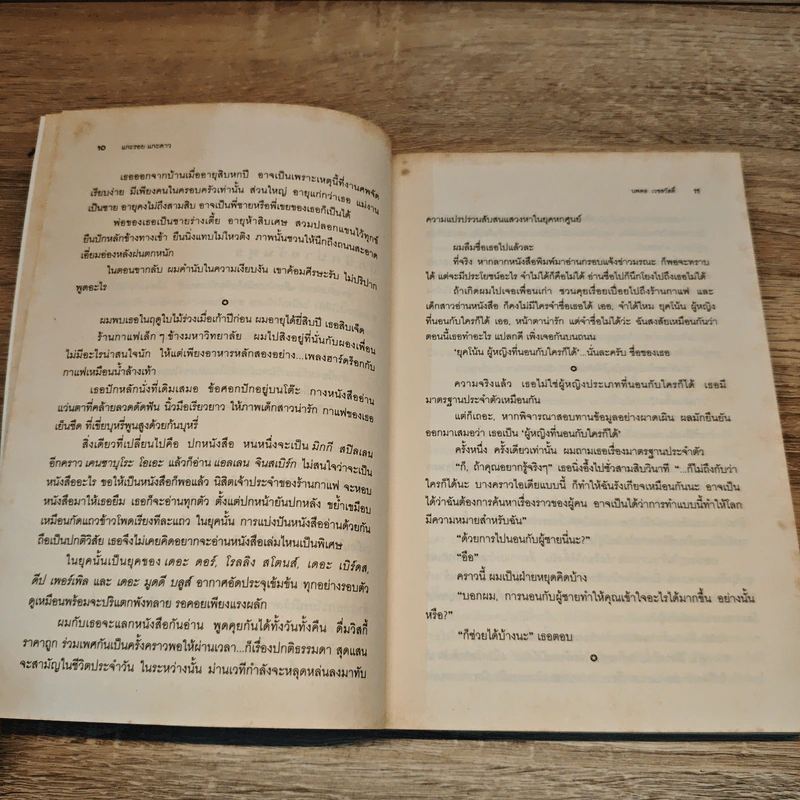 10 แกะรอย แกะดาว
เธอออกจากบ้านเมื่ออายุสิบหกปี อาจเป็นเพราะเหตุนี้ที่งานศพจัด
เรียบง่าย มีเพียงคนในครอบครัวเท่านั้น ส่วนใหญ่ อายุแก่กว่าเธอ แม่งาน
เป็นชาย อายุคงไม่ถึงสามสิบ อาจเป็นพี่ชายหรือพี่เขยของเธอก็เป็นได้
พ่อของเธอเป็นชายร่างเตี้ย อายุห้าสิบเศษ สวมปลอกแขนไว้ทุกข์
ยืนปักหลักข้างทางเข้า ยืนนิ่งแทบไม่ไหวติง ภาพนั้นชวนให้นึกถึงถนนสะอาด
เอี่ยมอ่องหลังฝนตกหนัก
ในตอนขากลับ ผมคำนับในความเงียบงัน เขาค้อมศีรษะรับ ไม่ปริปาก
พูดอะไร
ผมพบเธอในฤดูใบไม้ร่วงเมื่อเก้าปีก่อน ผมอายุได้ยี่สิบปี เธอสิบเจ็ด
ร้านกาแฟเล็ก ๆ ข้างมหาวิทยาลัย ผมไปสิงอยู่ที่นั่นกับผองเพื่อน
ไม่มีอะไรน่าสนใจนัก ให้แต่เพียงอาหารหลักสองอย่าง...เพลงฮาร์ดร็อกกับ
กาแฟเหมือนน้ำล้างเท้า
เธอปักหลักนั่งที่เดิมเสมอ ข้อศอกปักอยู่บนโต๊ะ กางหนังสืออ่าน
แว่นตาที่คล้ายลวดดัดฟัน นิ้วมือเรียวยาว ให้ภาพเด็กสาวน่ารัก กาแฟของเธอ
เย็นชืด ที่เขี่ยบุหรี่พูนสูงด้วยก้นบุหรี่
สิ่งเดียวที่เปลี่ยนไปคือ ปกหนังสือ หนหนึ่งจะเป็น มิกกี้ สปิลเลน
อีกคราว เคนซาบุโระ โอเอะ แล้วก็อ่าน แอลเลน จินสเบิร์ก ไม่สนใจว่าจะเป็น
หนังสืออะไร ขอให้เป็นหนังสือก็พอแล้ว นิสิตเจ้าประจำของร้านกาแฟ จะหอบ
หนังสือมาให้เธอยืม เธอก็จะอ่านทุกตัว ตั้งแต่ปกหน้ายันปกหลัง ขย้ำเขมือบ
เหมือนกัดแถวข้าวโพดเรียงทีละแถว ในยุคนั้น การแบ่งปันหนังสืออ่านด้วยกัน
ถือเป็นปกติวิสัย เธอจึงไม่เคยคิดอยากจะอ่านหนังสือเล่มไหนเป็นพิเศษ
ในยุคนั้นเป็นยุคของ เดอะ ดอร์, โรลลิง สโตนส์, เดอะ เบิร์ดส,
ดีป เพอร์เพิล และ เดอะ มูดดี บลูส์ อากาศอัดประจุเข้มข้น ทุกอย่างรอบตัว
ดูเหมือนพร้อมจะปริแตกพังทลาย รอคอยเพียงแรงผลัก
ผมกับเธอจะแลกหนังสือกันอ่าน พูดคุยกันได้ทั้งวันทั้งคืน ดื่มวิสกี้
ราคาถูก ร่วมเพศกันเป็นครั้งคราวพอให้ผ่านเวลา...ก็เรื่องปกติธรรมดา สุดแสน
จะสามัญในชีวิตประจำวัน ในระหว่างนั้น ม่านเวทีกำลังจะหลุดหล่นลงมาทับ
นพดล เวชสวัสดิ์
ความแปรปรวนสับสนแสวงหาในยุคหกศูนย์
ผมลืมชื่อเธอไปแล้วละ
ที่จริง หากลากหนังสือพิมพ์มาอ่านกรอบแจ้งข่าวมรณะ ก็พอจะทราบ
ได้ แต่จะมีประโยชน์อะไร จำไม่ได้ก็คือไม่ได้ อ่านชื่อไปก็นึกโยงไปถึงเธอไม่ได้
ถ้าเกิดผมไปเจอเพื่อนเก่า ชวนคุยเรื่อยเปื่อยไปถึงร้านกาแฟ และ
เด็กสาวอ่านหนังสือ ก็คงไม่มีใครจำชื่อเธอได้ เออ, จำได้ไหม ยุคโน้น ผู้หญิง
ที่นอนกับใครก็ได้ เออ, หน้าตาน่ารัก แต่จำชื่อไม่ได้ว่ะ ฉันสงสัยเหมือนกันว่า
ตอนนี้เธอทำอะไร แปลกดี เพิ่งเจอกันบนถนน
'ยุคโน้น ผู้หญิงที่นอนกับใครก็ได้'...นั่นละครับ ชื่อของเธอ
ความจริงแล้ว เธอไม่ใช่ผู้หญิงประเภทที่นอนกับใครก็ได้ เธอมี
มาตรฐานประจำตัวเหมือนกัน
แต่ก็เถอะ, หากพิจารณาสอบทานข้อมูลอย่างผาดเผิน ผลมักยืนยัน
ออกมาเสมอว่า เธอเป็น 'ผู้หญิงที่นอนกับใครก็ได้'
ครั้งหนึ่ง ครั้งเดียวเท่านั้น ผมถามเธอเรื่องมาตรฐานประจำตัว
"ก็, ถ้าคุณอยากรู้จริงๆ" เธอนิ่งอึ้งไปชั่วสามสิบวินาที "...ก็ไม่ถึงกับว่า
ใครก็ได้นะ บางคราวไอเดียแบบนี้ ก็ทำให้ฉันรังเกียจเหมือนกันนะ อาจเป็น
ได้ว่าฉันต้องการค้นหาเรื่องราวของผู้คน อาจเป็นได้ว่าการทำแบบนี้ทำให้โลก
มีความหมายสำหรับฉัน"
"ด้วยการไปนอนกับผู้ชายนี่นะ?"
"อือ"
คราวนี้ ผมเป็นฝ่ายหยุดคิดบ้าง
"บอกผม, การนอนกับผู้ชายทำให้คุณเข้าใจอะไรได้มากขึ้น อย่างนั้น
หรือ?"
"ก็ช่วยได้บ้างนะ" เธอตอบ